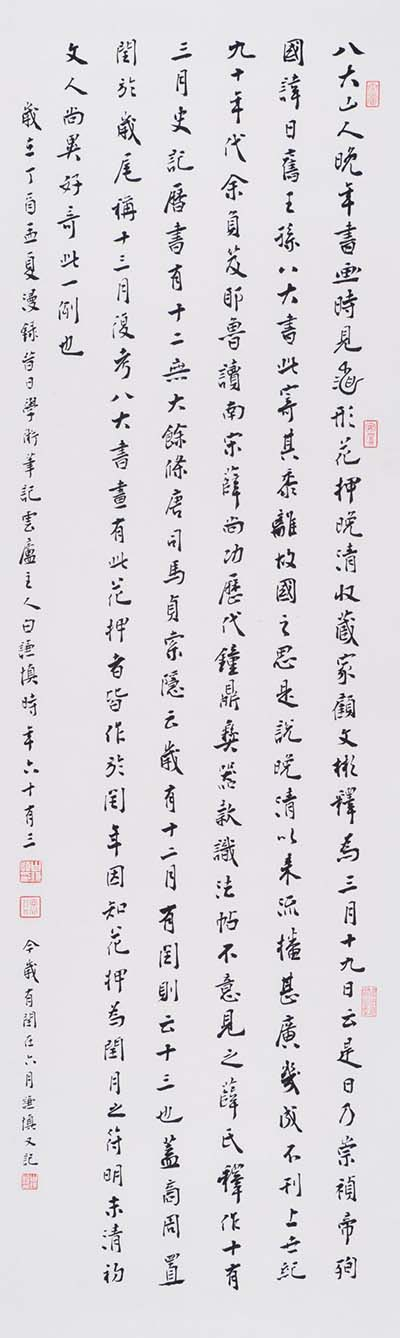 八大山人晚年書画時見此形花押晚清收藏家顧文彬釋為三月十九日云是日乃崇禎帝殉
國諱日舊王孫八大書此寄其黍離故國之思是說晚清以來流播甚廣幾成不刊上世紀
九十年代余負笈耶魯讀南宋薛尚功歷代鐘鼎彝器款識法帖不意見之薛氏釋作十有
三月史記曆書有十二無大餘條唐司馬貞索隱云歲有十二月有閏則云十三也蓋商周置
閏於歲尾稱十三月復考八大書畫有此花押者皆作於閏年因知花押為閏月之符明末清初
文人尚異好奇此一例也
歲在丁酉孟夏漫錄昔日學術筆記雲廬主人白謙慎時年六十有三
今歲有閏在六月謙慎又記